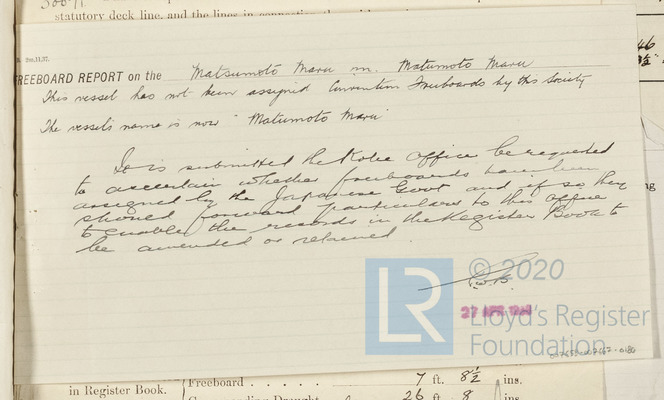 statutory deck line, and the lines in
FREEBOARD REPORT on the Matsumoto Maru m. Matumoto Maru
This vessel has not been assigned Convention Freeboards by this Society
The vessel's name is now "Matumoto Maru"
It is submitted the Kobe Office be requested
to ascertain whether freeboards have been
assigned by the Japanese Govt and if so they
should forward particulars to this office
to enable the records in the Register Book to
be amended or retained.
© 2020
27 APR
LR
Lloyd's Register
Foundation
in Register Book.
Freeboard . . . . . 7 ft. 8½ ins.
26 ft. 8 ins.